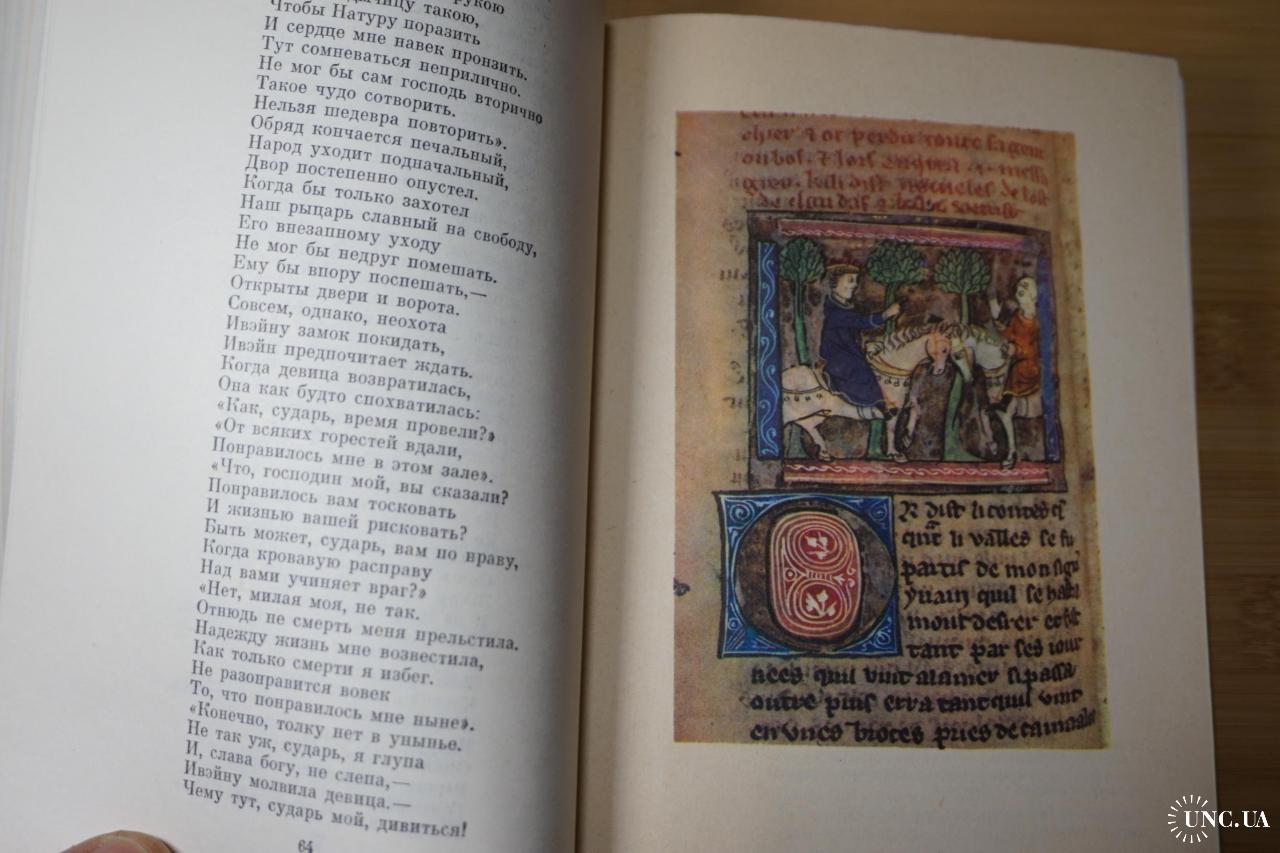 рукою
такою,
Чтобы Натуру поразить
И сердце мне навек пронзить.
Тут сомневаться неприлично.
Не мог бы сам господь вторично
Такое чудо сотворить.
Нельзя шедевра повторить».
Обряд кончается печальный,
Народ уходит подначальный,
Двор постепенно опустел.
Когда бы только захотел
Наш рыцарь славный на свободу,
Его внезапному уходу
Не мог бы недруг помешать.
Ему бы впору поспешать,—
Открыты двери и ворота.
Совсем, однако, неохота
Ивэйну замок покидать,
Ивэйн предпочитает ждать.
Когда девица возвратилась,
Она как будто спохватилась:
«Как, сударь, время провели?»
«От всяких горестей вдали,
Понравилось мне в этом зале».
«Что, господин мой, вы сказали?
Понравилось вам тосковать
И жизнью вашей рисковать?
Быть может, сударь, вам по нраву,
Когда кровавую расправу
Над вами учиняет враг?»
«Нет, милая моя, не так.
Отнюдь не смерть меня прельстила.
Надежду жизнь мне возвестила,
Как только смерти я избег.
Не разонравится вовек
То, что понравилось мне ныне».
«Конечно, толку нет в унынье.
Не так уж, сударь, я глупа
И, слава богу, не слепа,—
Ивэйну молвила девица.—
Чему тут, сударь мой, дивиться!
64
dist li contes
que li valles se fu
partis de mon
yuain quil se
mont
tant par ses iour
nees quil vint alamer si passa
outre puis erra tant quil vint
en vnes pries de
UNC.UA